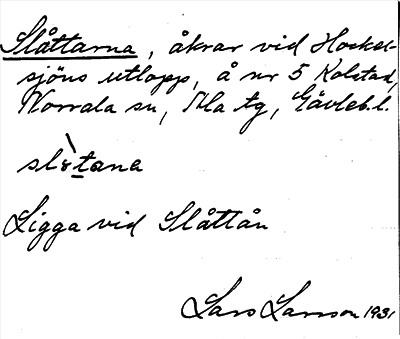 Slåttarna, åkrar vid Hockel-
sjöns utlopp, å nr 5 Kolstad,
Norrala sn, Ala tg, Gävleb.l.
slὸtana
Ligga vid Slåttån
Lars Larsson 1931